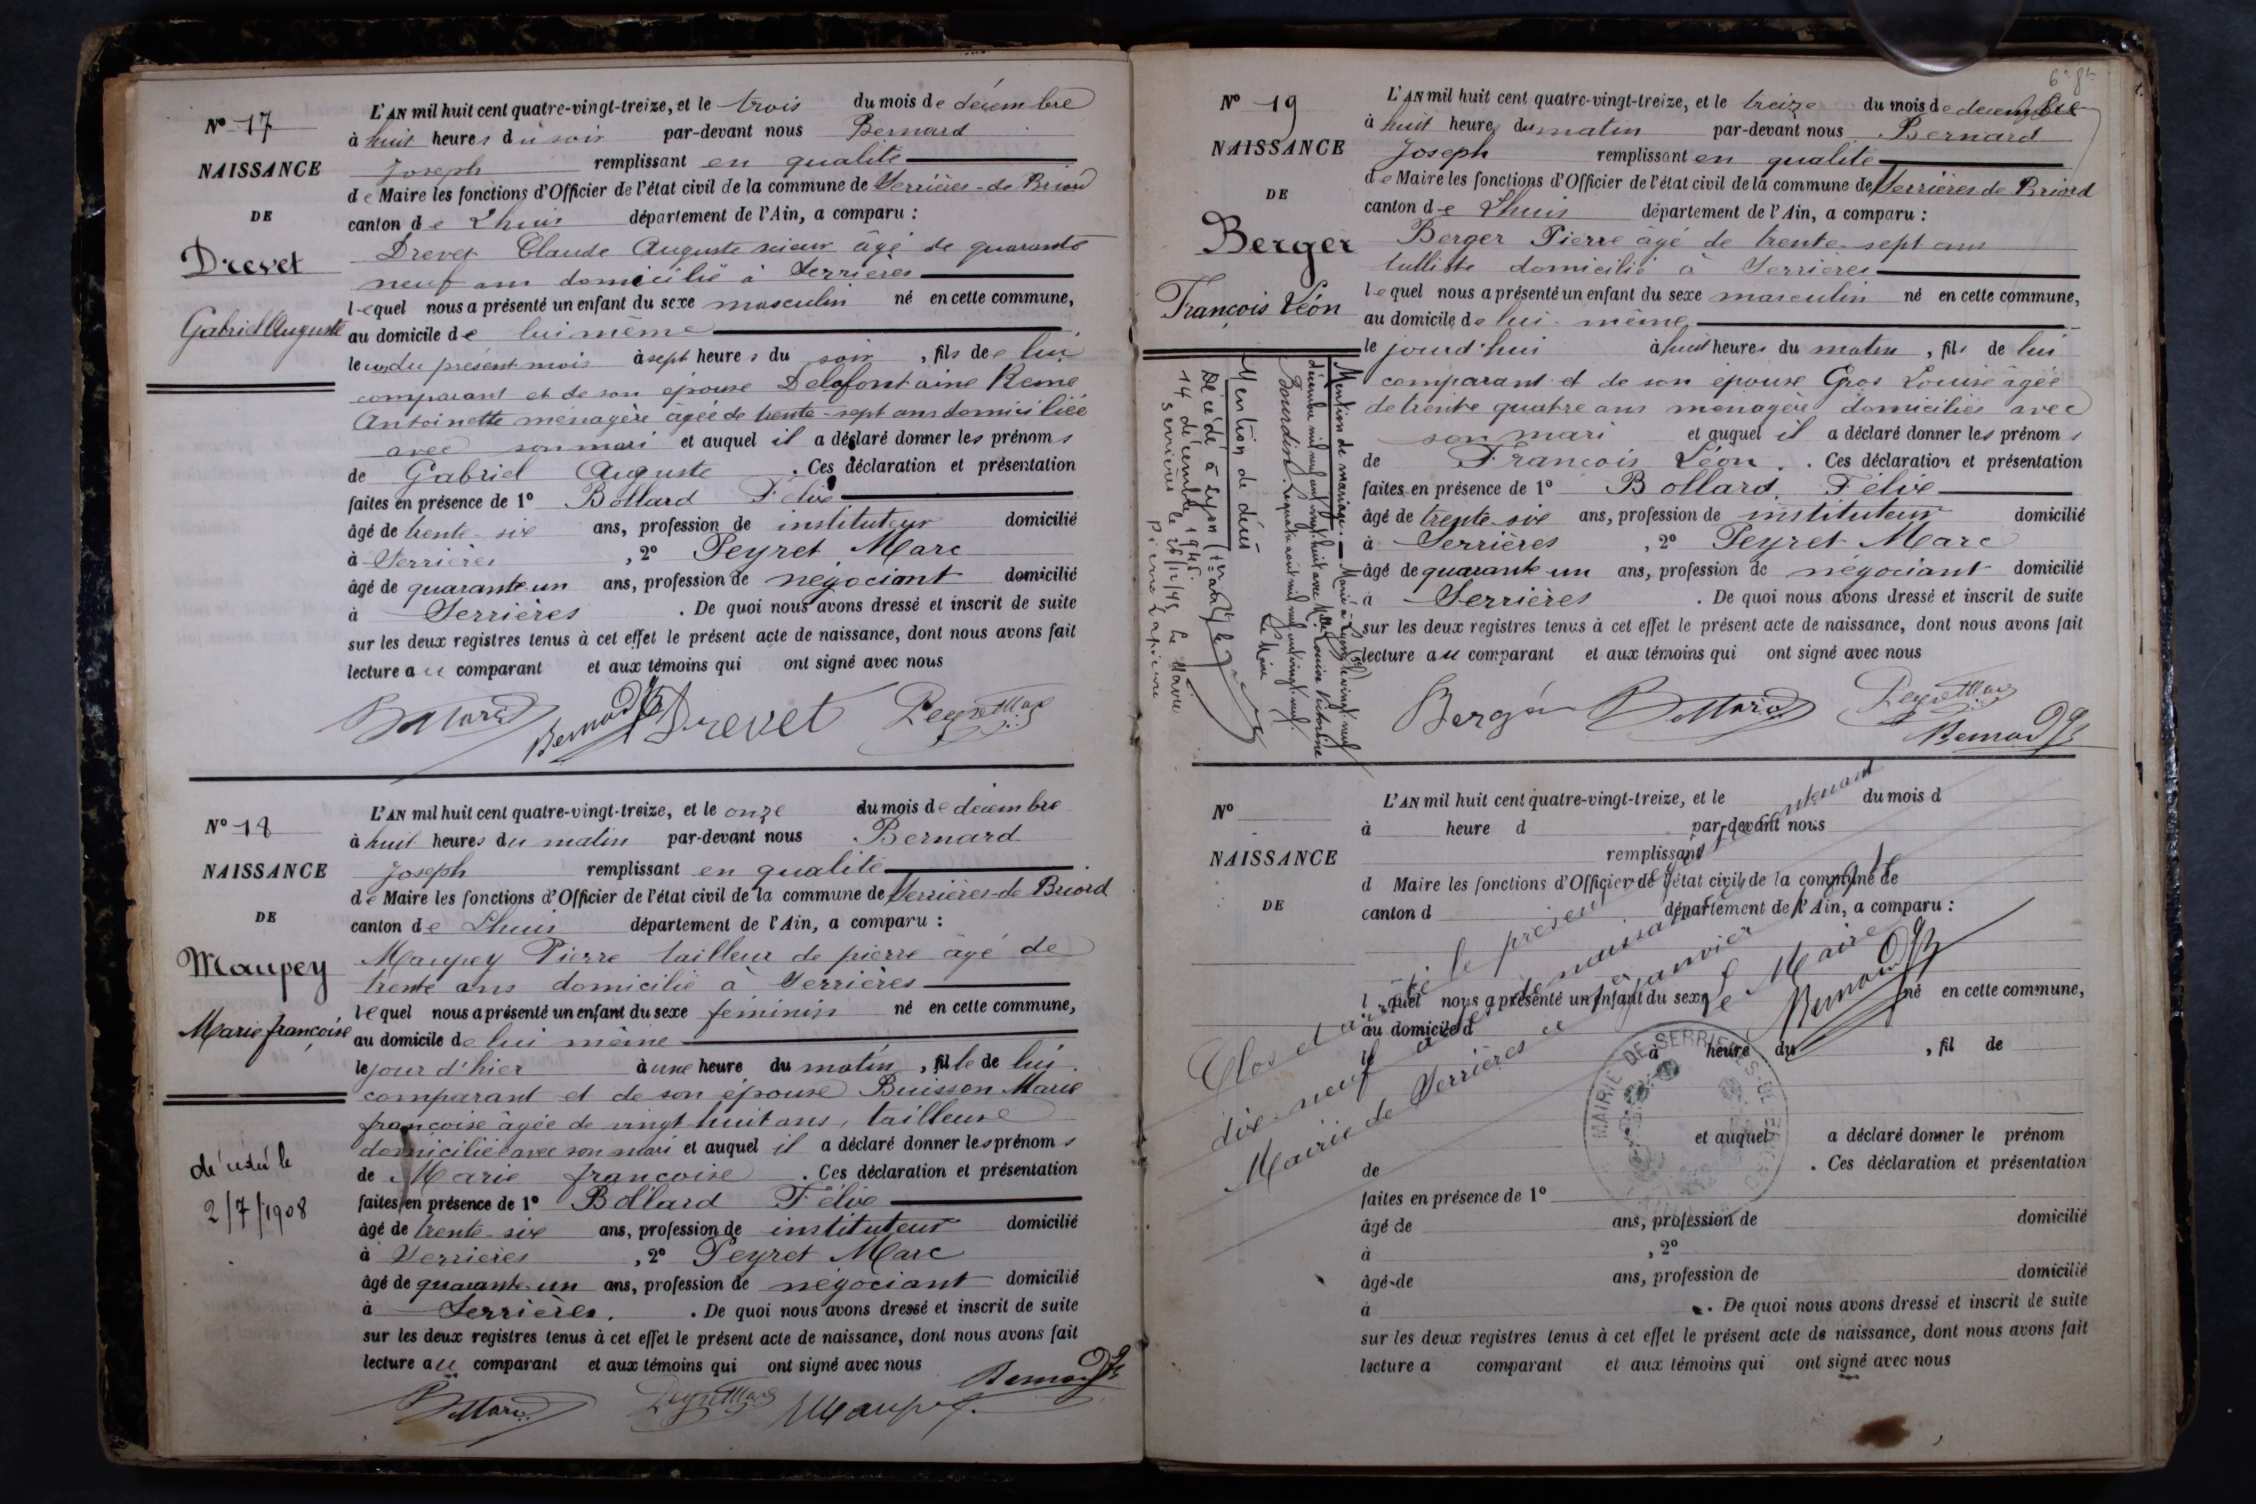 No 17
NAISSANCE
DE
Drevet
Gabriel Auguste
L'AN mil huit cent quatre-vingt-treize, et le trois du mois de décembre
à huit heures du soir par-devant nous Bernard
Joseph remplissant en qualité
de Maire les fonctions d'Officier de l'état civil de la commune de Serrières-de Briord
canton de Lhuis département de l'Ain, a comparu :
Drevet Claude Auguste scieur âgé de quarante
neuf ans domicilié à Serrières
lequel nous a présenté un enfant du sexe masculin né en cette commune,
au domicile de lui même
le du présent mois à sept heures du soir, fils de lui
comparant et de son épouse Delafontaine Reine
Antoinette ménagère âgée de trente-sept ans domiciliée
avec son mari et auquel il a déclaré donner les prénoms
de Gabriel Auguste. Ces déclaration et présentation
faites en présence de 1o Bollard Félix
âgé de trente-six ans, profession de instituteur domicilié
à Serrières, 2o Peyret Marc
âgé de quarante un ans, profession de négociant domicilié
à Serrières. De quoi nous avons dressé et inscrit de suite
sur les deux registres tenus à cet effet le présent acte de naissance, dont nous avons fait
lecture au comparant et aux témoins qui ont signé avec nous
Bollard Bernard Drevet Peyret Marc
No 18
NAISSANCE
DE
Maupey
Marie françoise
décédée le
2/7/1908
L'AN mil huit cent quatre-vingt-treize, et le onze du mois de décembre
à huit heures du matin par-devant nous Bernard
Joseph remplissant en qualité
de Maire les fonctions d'Officier de l'état civil de la commune de Serrières-de Briord
canton de Lhuis département de l'Ain, a comparu :
Maupey Pierre tailleur de pierre âgé de
trente ans domicilié à Serrières
lequel nous a présenté un enfant du sexe féminin né en cette commune,
au domicile de lui même
le jour d'hier à une heure du matin, fille de lui
comparant et de son épouse Buisson Marie
françoise âgée de vingt huit ans, tailleuse
domiciliée avec son mari et auquel il a déclaré donner les prénoms
de Marie françoise. Ces déclaration et présentation
faites en présence de 1o Bollard Félix
âgé de trente-six ans, profession de instituteur domicilié
à Serrières, 2o Peyret Marc
âgé de quarante-un ans, profession de négociant domicilié
à Serrières. De quoi nous avons dressé et inscrit de suite
sur les deux registres tenus à cet effet le présent acte de naissance, dont nous avons fait
lecture au comparant et aux témoins qui ont signé avec nous
Bollard Peyret Marc Maupey Bernard
No 19
NAISSANCE
DE
Berger
François Léon
L'AN mil huit cent quatre-vingt-treize, et le treize du mois de décembre
à huit heures du matin par-devant nous Bernard
Joseph remplissant en qualité
de Maire les fonctions d'Officier de l'état civil de la commune de Serrières de Briord
canton de Lhuis département de l'Ain, a comparu :
Berger Pierre âgé de trente-sept ans
tulliste domicilié à Serrières
lequel nous a présenté un enfant du sexe masculin né en cette commune,
au domicile de lui-même
le jourd'hui à huit heures du matin, fils de lui
comparant et de son épouse Gros Louise âgée
de trente quatre ans ménagère domiciliée avec
son mari et auquel il a déclaré donner les prénoms
de François Léon. Ces déclaration et présentation
faites en présence de 1o Bollard Félix
âgé de trente-six ans, profession de instituteur domicilié
à Serrières, 2o Peyret Marc
âgé de quarante un ans, profession de négociant domicilié
à Serrières. De quoi nous avons dressé et inscrit de suite
sur les deux registres tenus à cet effet le présent acte de naissance, dont nous avons fait
lecture au comparant et aux témoins qui ont signé avec nous
Berger Bollard Peyret Marc Bernard
Mention de mariage. Marié à Lyon le vingt-neuf
décembre mil neuf cent vingt-huit avec Melle Louise Victorine
Bourdin. Le quatre août mil neuf cent vingt-neuf
Le Maire
Mention de décès
Décédé à Lyon
14 décembre 1945.
Serrières le 26/12/45, Le Maire
Pierre Lapierre
No
NAISSANCE
DE
L'AN mil huit cent quatre-vingt-treize, et le du mois d
à heure d par-devant nous
remplissant
d Maire les fonctions d'Officier de l'état civil de la commune de
canton d département de l'Ain, a comparu :
l quel nous a présenté un enfant du sexe né en cette commune,
au domicile d
le à heure du, fil de
et auquel a déclaré donner le prénom
de. Ces déclaration et présentation
faites en présence de 1o
âgé de ans, profession de domicilié
à, 2o
âgé de ans, profession de domicilié
à. De quoi nous avons dressé et inscrit de suite
sur les deux registres tenus à cet effet le présent acte de naissance, dont nous avons fait
lecture a comparant et aux témoins qui ont signé avec nous
Clos et arrêté le présent registre contenant
dix-neuf actes de naissance
Mairie de Serrières le janvier
Le Maire
Bernard
MAIRIE DE SERRIERES-DE BRIORD